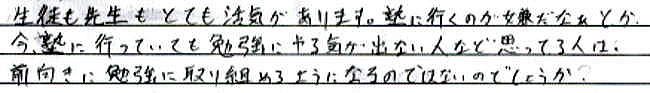 生徒も先生もとても活気があります。塾に行くのが嫌だなぁとか、
今、塾に行っていても勉強にやる気が出ない人など思ってる人は、
前向きに勉強に取り組めるようになるのではないのでしょうか?